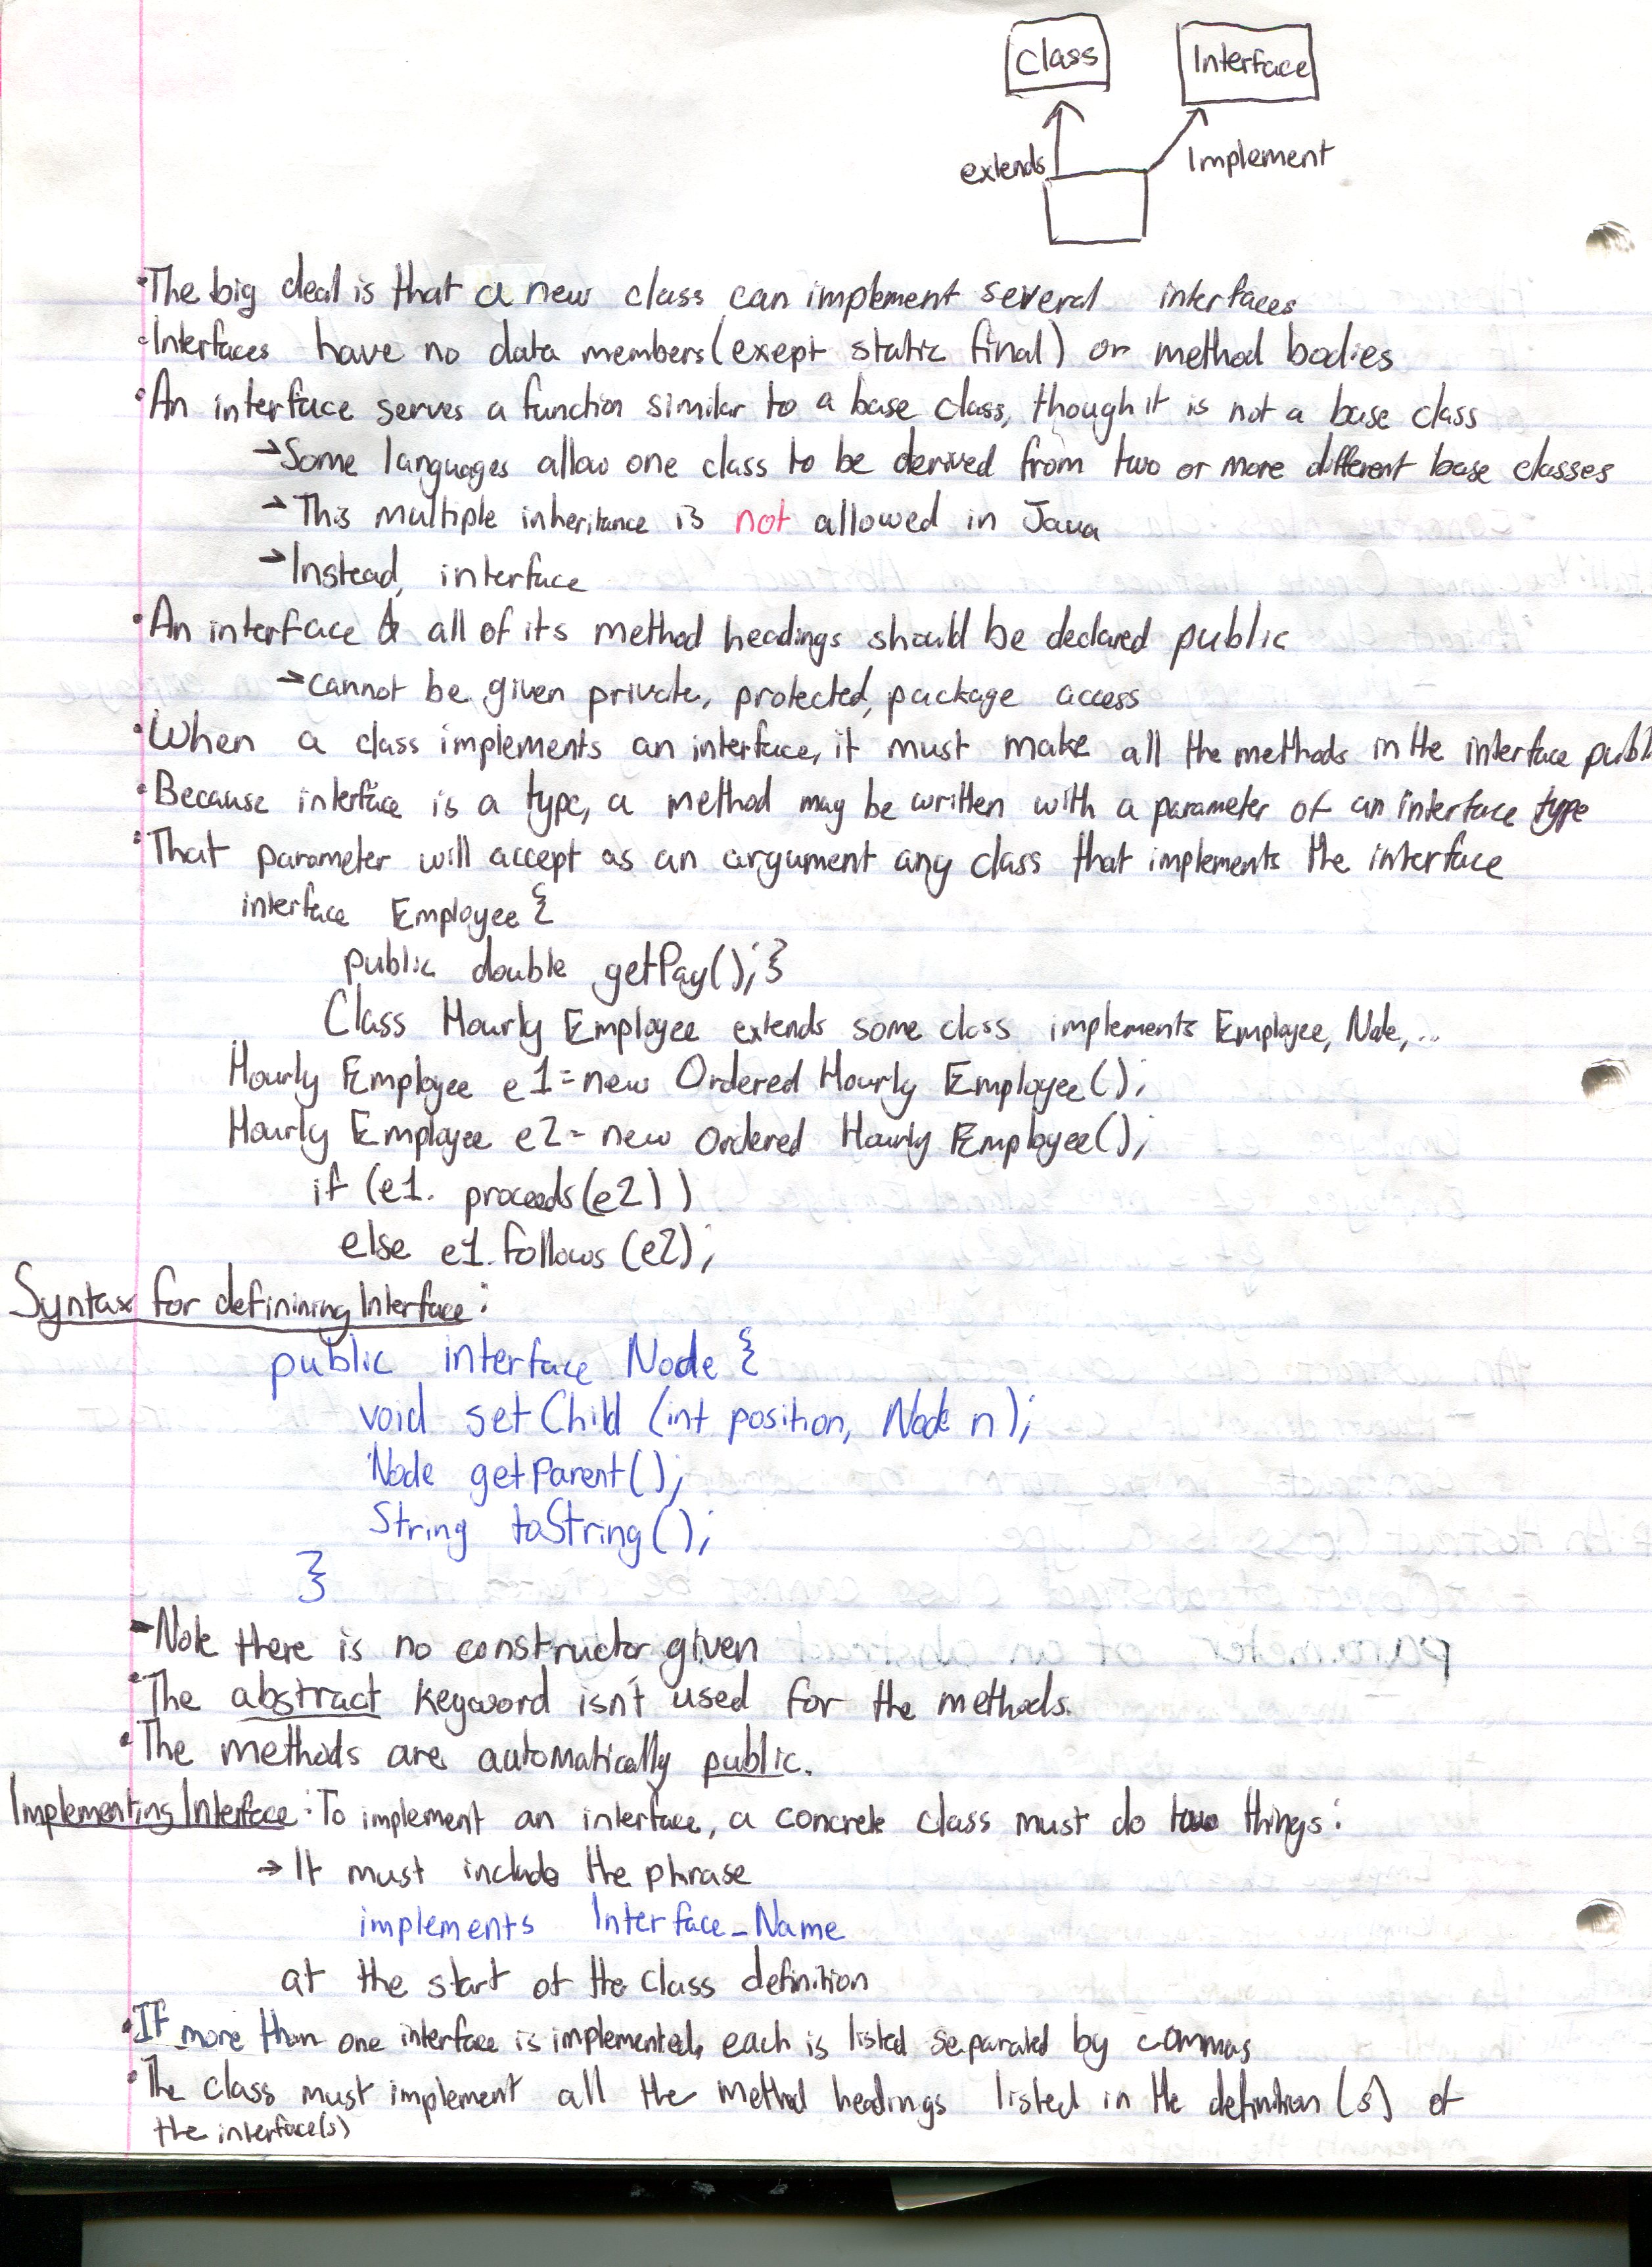 Class
Interface
extends
Implement
•The big deal is that a new class can implement several interfaces
•Interfaces have no data members (exept static final) or method bodies
•An interface serves a function similar to a base class, though it is not a base class
→Some languages allow one class to be derived from two or more different base classes
→This multiple inheritance is not allowed in Java
→Instead, interface
•An interface & all of its method headings should be declared public
→cannot be given private, protected, package access
•When a class implements an interface, it must make all the methods in the interface publ
•Because interface is a type, a method may be written with a parameter of an interface type
•That parameter will accept as an argument any class that implements the interface
interface Employee {
public double getPay();}
Class Hourly Employee extends some class implements Employee, Node,...
Hourly Employee e1=new Ordered Hourly Employee();
Hourly Employee e2=new Ordered Hourly Employee();
if (e1. proceeds(e2))
else e1.follows(e2);
Syntax for definining Interface:
public interface Node {
void setChild (int position, Node n);
Node getParent();
String toString();
}
-Note there is no constructor given
•The abstract keyword isn't used for the methods.
•The methods are automatically public.
Implementing Interface: To implement an interface, a concrete class must do two things:
→It must include the phrase
implements Interface_Name
at the start of the class definition
•If more than one interface is implemented, each is listed separated by commas
•The class must implement all the method headings listed in the definition(s) of
the interface(s)